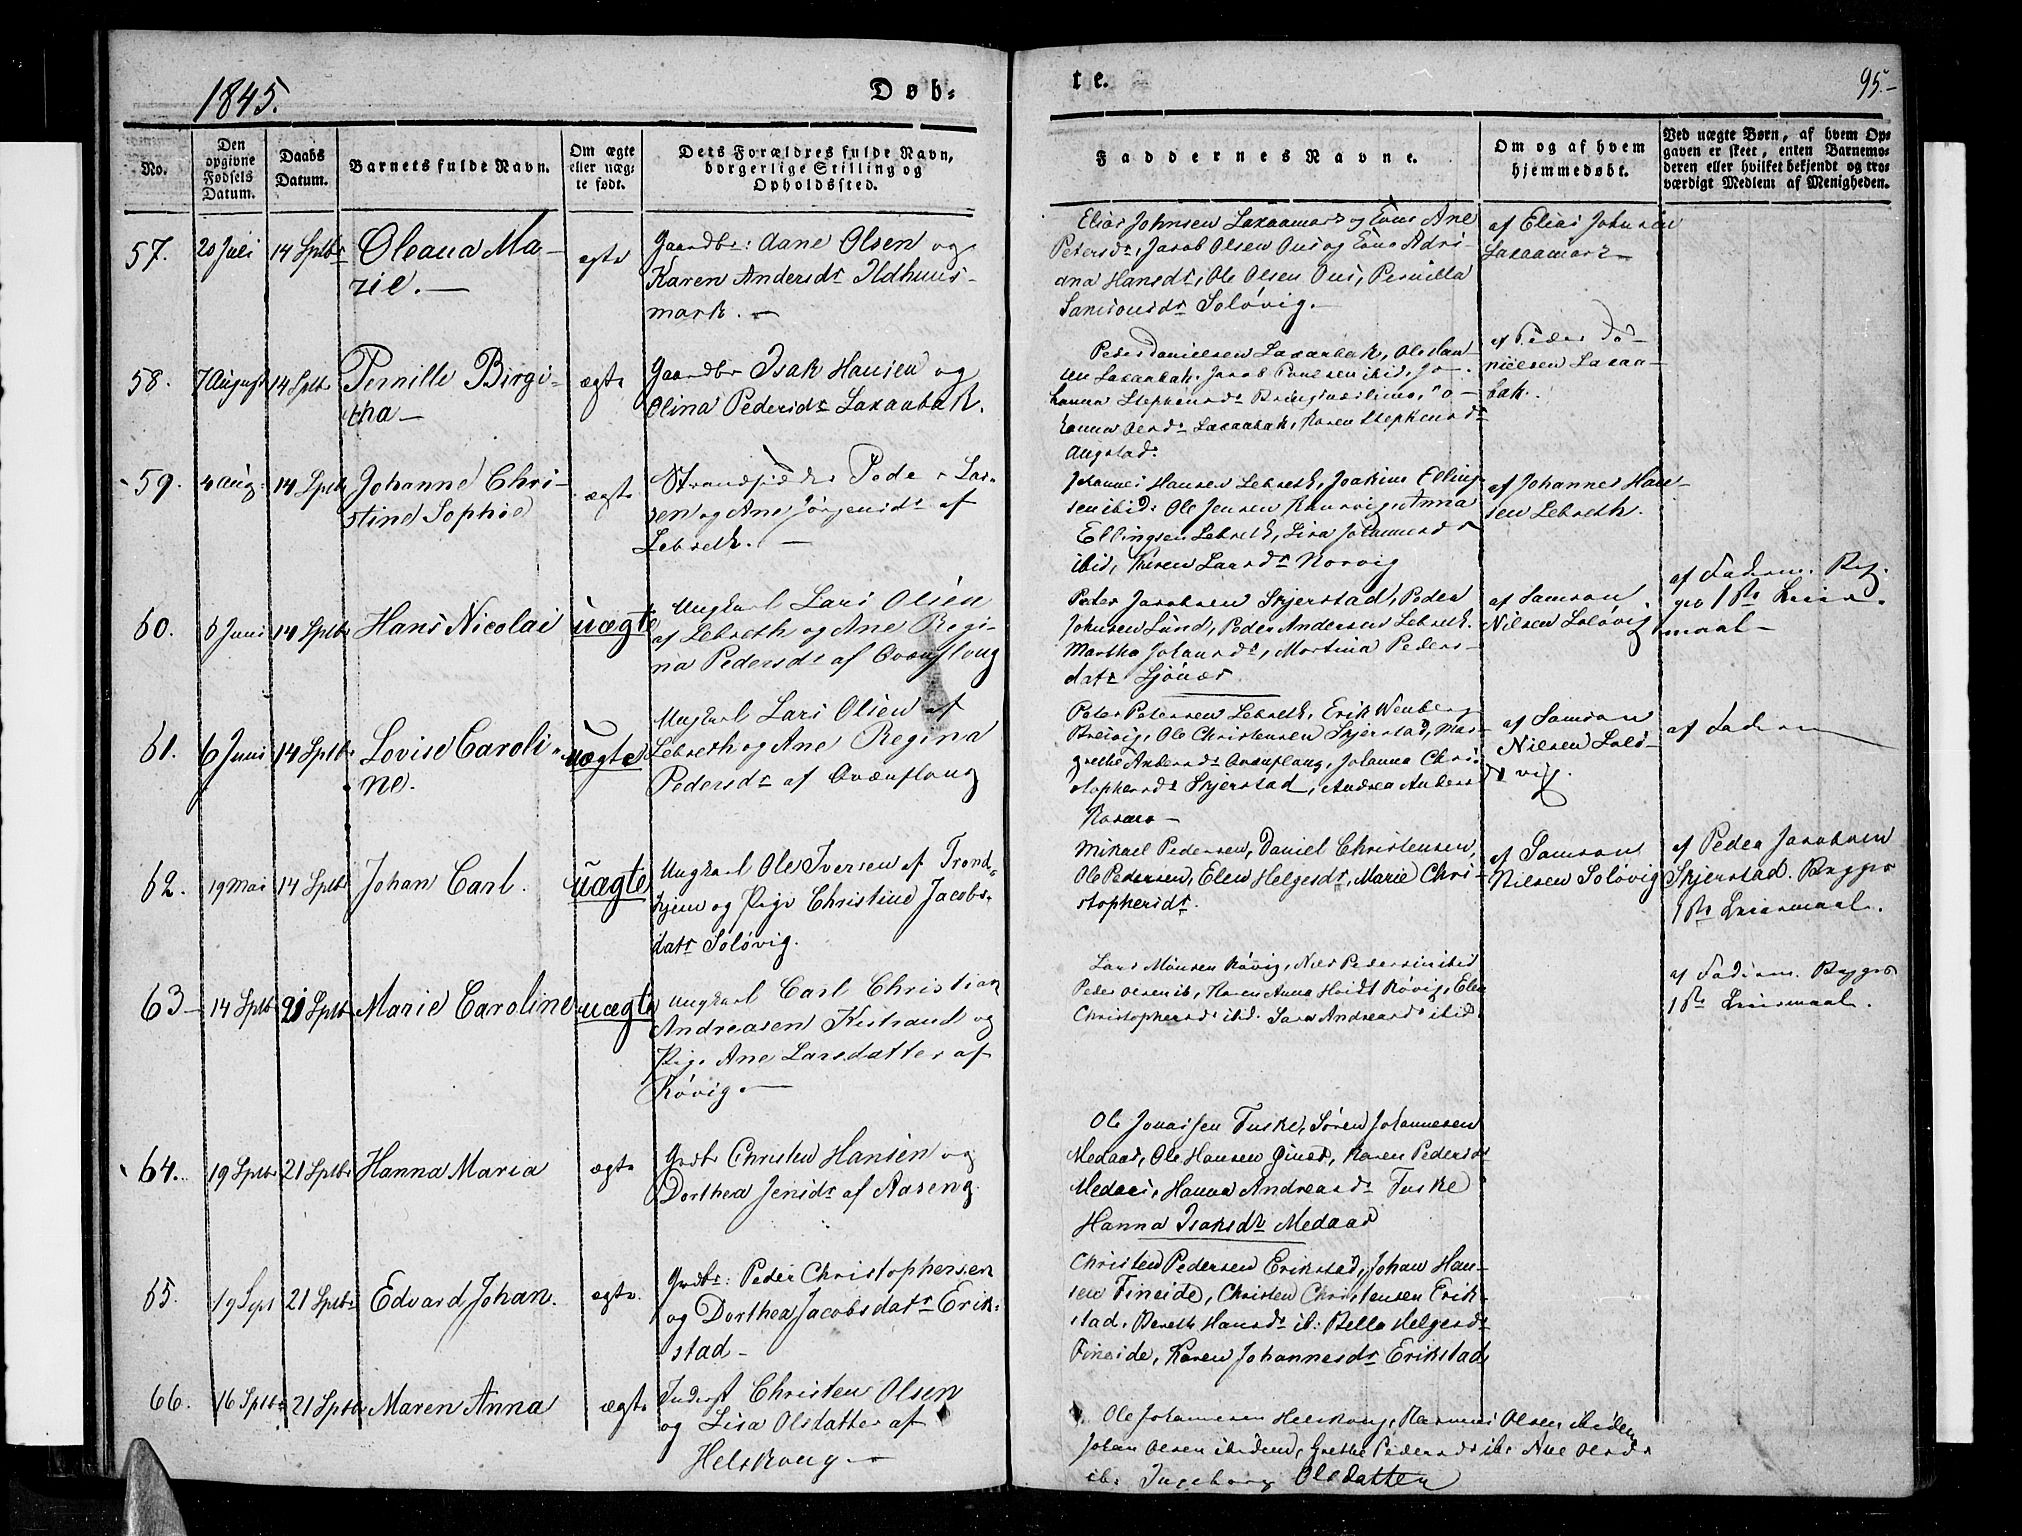 1845.
Døb-
te.
95.-
No.
Den
opgivne
Fødsels
Datum.
Daabs
Datum.
Barnets fulde Navn.
Om ægte
eller uæg-
te født.
Dets Forældres fulde Navn,
borgerlige Stilling og
Opholdssted.
Faddernes Navne.
Om og af hvem
hjemmedøbt.
Ved uægte Børn, af hvem Op-
gaven er skeet, enten Barnemo-
deren eller hvilket bekjendt og tro-
værdigt Medlem af Menigheden.
57.
20 Juli
14 Sptbr
Oleana Ma-
rie.-
ægte
Gaardbr: Aane Olsen og
Karen Andersdr Ildhuus-
mark.-
Elias Johnsen Laxaamark og Kone Ane
Petersdr, Jacob Olsen Ous og Kone Adri-
ana Hansdr, Ole Olsen Ous, Pernilla
Samsonsdr Soløvig.-
af Elias Johnsen
Laxaamark
58.
7 August
14 Sptbr
Pernille Birgi-
tha-
ægte
Gaardbr Isak Hansen og
Olina Pedersdr Laxaabak.
Peder Danielsen Laxaabak, Ole Han-
sen Laxaabak, Jacob Poulsen ibid, Jo-
hanna Stephensdr
Olesdr Laxaabak, Karen Stephensdr
Augstad.
af Peder Da-
nielsen Laxaa-
bak.
59.
4 Aug:
14 Sptbr
Johanne Chri-
stine Sophie
ægte
Strandsidder Peder Lar-
sen og Ane Jørgensdr af
Lebseth.-
Johannes Hansen Lebseth, Joakim Elling-
sen ibid: Ole Jensen Anna
Ellingsen Lebseth, Lisa Johannesdr
ibid, Karen Larsdr Norvig
af Johannes Han-
sen Lebseth.
60.
6 Juni
14 Sptbr
Hans Nicolai
uægte
Ungkarl Lars Olsen
af Lebseth og Ane Regi-
na Pedersdr af Ovænflong
Peder Jacobsen Skjerstad, Peder
Johnsen Lund, Peder Andersen Lebseth.
Martha Johansdr, Martina Peders-
datr Ljønes.
af Samson
Nilsen Soløvig.
af Faderen. Beg-
ges 1ste Leier-
maal-
61.
6 Juni
14 Sptbr
Lovise Caroli-
ne.
uægte
Ungkarl Lars Olsen af
Lebseth og Ane Regina
Pedersdr af Ovænflong
Peter Petersen Lebseth, Erik Wenberg
Breivig, Ole Christensen Skjerstad, Mar-
grethe Andersdr Ovænflong, Johanna Chri-
stophersdr Skjerstad, Andrea Andersdr
af Samson
Nilsen Solø-
vig.
af Faderen
62.
19 Mai
14 Sptbr
Johan Carl.
uægte
Ungkarl Ole Iversen af Trond-
hjem og Pige Christine Jacobs-
datr Soløvig.
Mikael Pedersen, Daniel Christensen,
Ole Pedersen, Elen Helgesdr, Marie Chri-
stophersdr.
af Samson
Nilsen Soløvig
af Peder Jacobsen
Skjerstad. Begges
1ste Leiermaal.
63-
14 Sptbr
21 Sptbr
Marie Caroline
uægte
Ungkarl Carl Christian
Andreasen Kistrand og
Pige Ane Larsdatter af
Røvig.-
Lars Monsen Røvig, Niels Pedersen ibid
Peder Olsen ib, Karen Anna Hvidt Røvig, Elen
Christophersdr ibid. Sara Andreasdr ibid.
af Faderen. Begges
1ste Leiermaal.
64.
19 Sptbr
21 Sptbr
Hanna Maria
ægte
Grdbr Christen Hansen og
Dorthea Jensdr af Aaseng.
Ole Jonassen Fuske, Søren Johannesen
Medaas, Ole Hansen, Karen Pedersdr
Medaas, Hanna Andreasdr Fuske
Hanna Isaksdr Medaas
65.
19 Sept
21 Sptbr
Edvard Johan.
ægte.
Grdbr: Peder Christophersen
og Dorthea Jacobsdatr Erik-
stad-
Christen Pedersen Erikstad, Johan Han-
sen Fineide, Christen Christensen Erik-
stad, Bereth Hansdr ib: Bella Helgesdr
Fineide, Karen Johannesdr Erikstad
66.
16 Sptbr
21 Sptbr
Maren Anna
ægte
Inderst Christen Olsen
og Lisa Olsdatter af
Helskong.-
Ole Johannesen Helskong, Rasmus Olsen ibidem
Johan Olsen ibidem, Grethe Pedersdr ib: Ane Olsdr
ib: Ingeborg Olsdatter